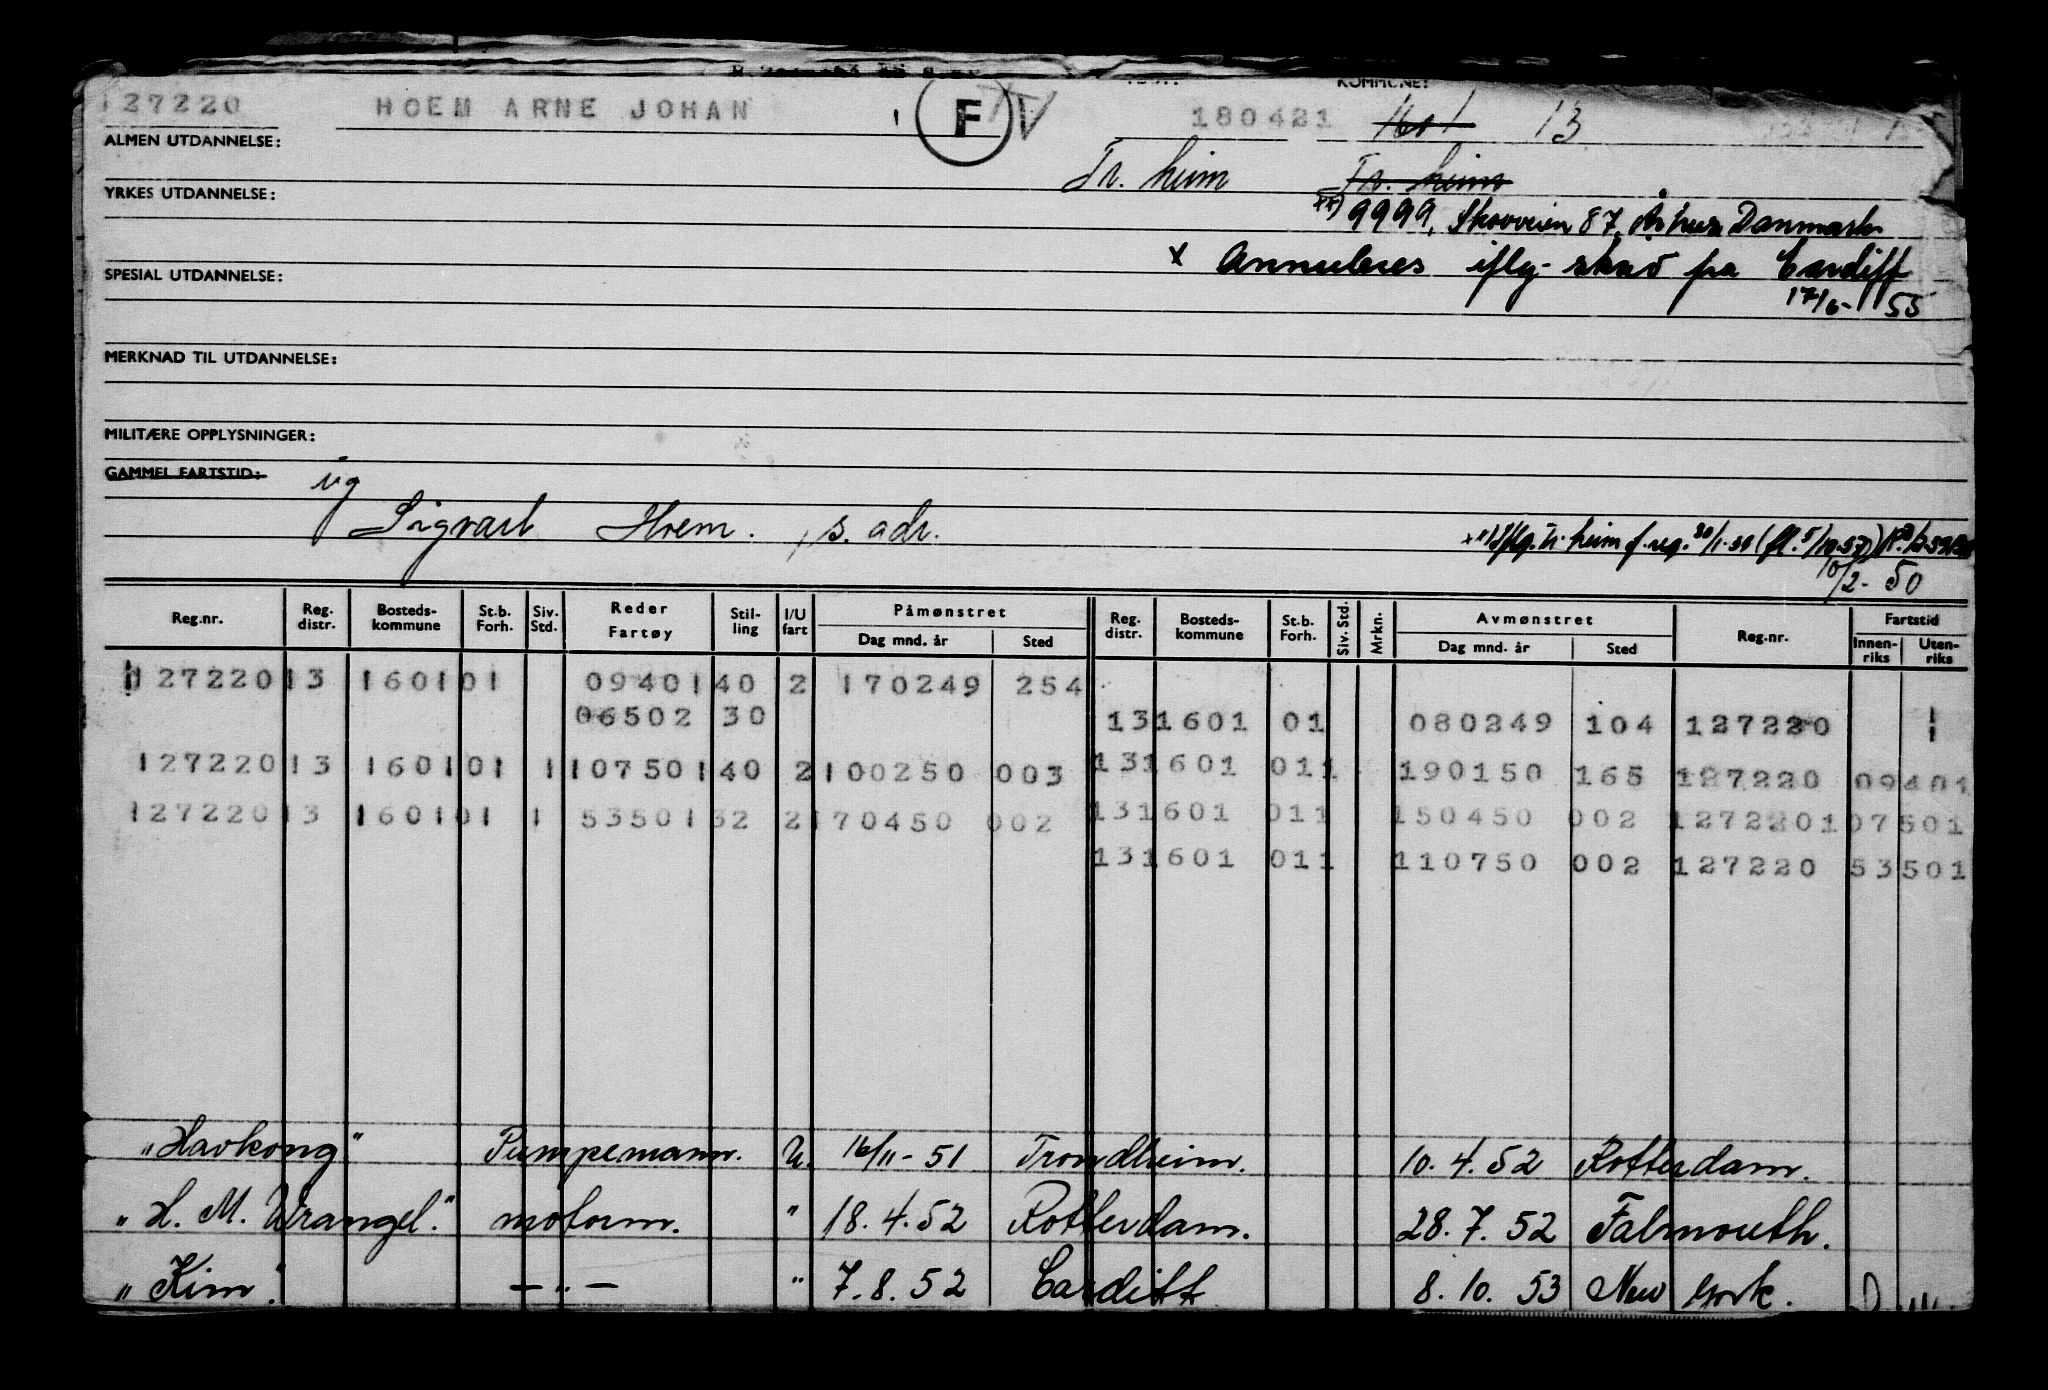 KOMMUNE:
127220 HOEM ARNE JOHAN F 180421 1601 13
ALMEN UTDANNELSE:
Tr. heim Tr. heim
YRKES UTDANNELSE:
xx) 9999, Skovveien 87, Århus Danmark
x Annuleres iflg. skriv fra Cardiff
SPESIAL UTDANNELSE:
17/6- 55
MERKNAD TIL UTDANNELSE:
MILITÆRE OPPLYSNINGER:
GAMMEL FARTSTID:
ug
Sigvart Hoem. , s. adr.
10/2- 50
Reg.nr. Reg. distr. Bosteds-kommune St.b. Forh. Siv. Std. Reder Fartøy Stil-ling I/U fart Påmønstret Dag mnd. år Sted Reg. distr. Bosteds-kommune St.b. Forh. Siv. Std. Mrkn. Avmønstret Dag mnd. år Sted Reg.nr. Fartstid Innen-riks Uten-riks
127220 13 1601 01 09401 40 2 170249 254
06502 30 13 1601 01 080249 104 127220 1
127220 13 1601 01 1 107501 40 2 100250 003 13 1601 01 1 190150 165 127220 09401
127220 13 1601 01 1 53501 32 2 170450 002 13 1601 01 1 150450 002 127220 107501
13 1601 01 1 110750 002 127220 53501
"Havkong" Pumpemann. U. 16/11- 51 Trondheim. 10. 4. 52 Rotterdam.
"H. M. Wrangel." motorm. " 18. 4. 52 Rotterdam. 28. 7. 52 Falmouth.
"Kim". — " — " 7. 8. 52 Cardiff 8. 10. 53 New York.